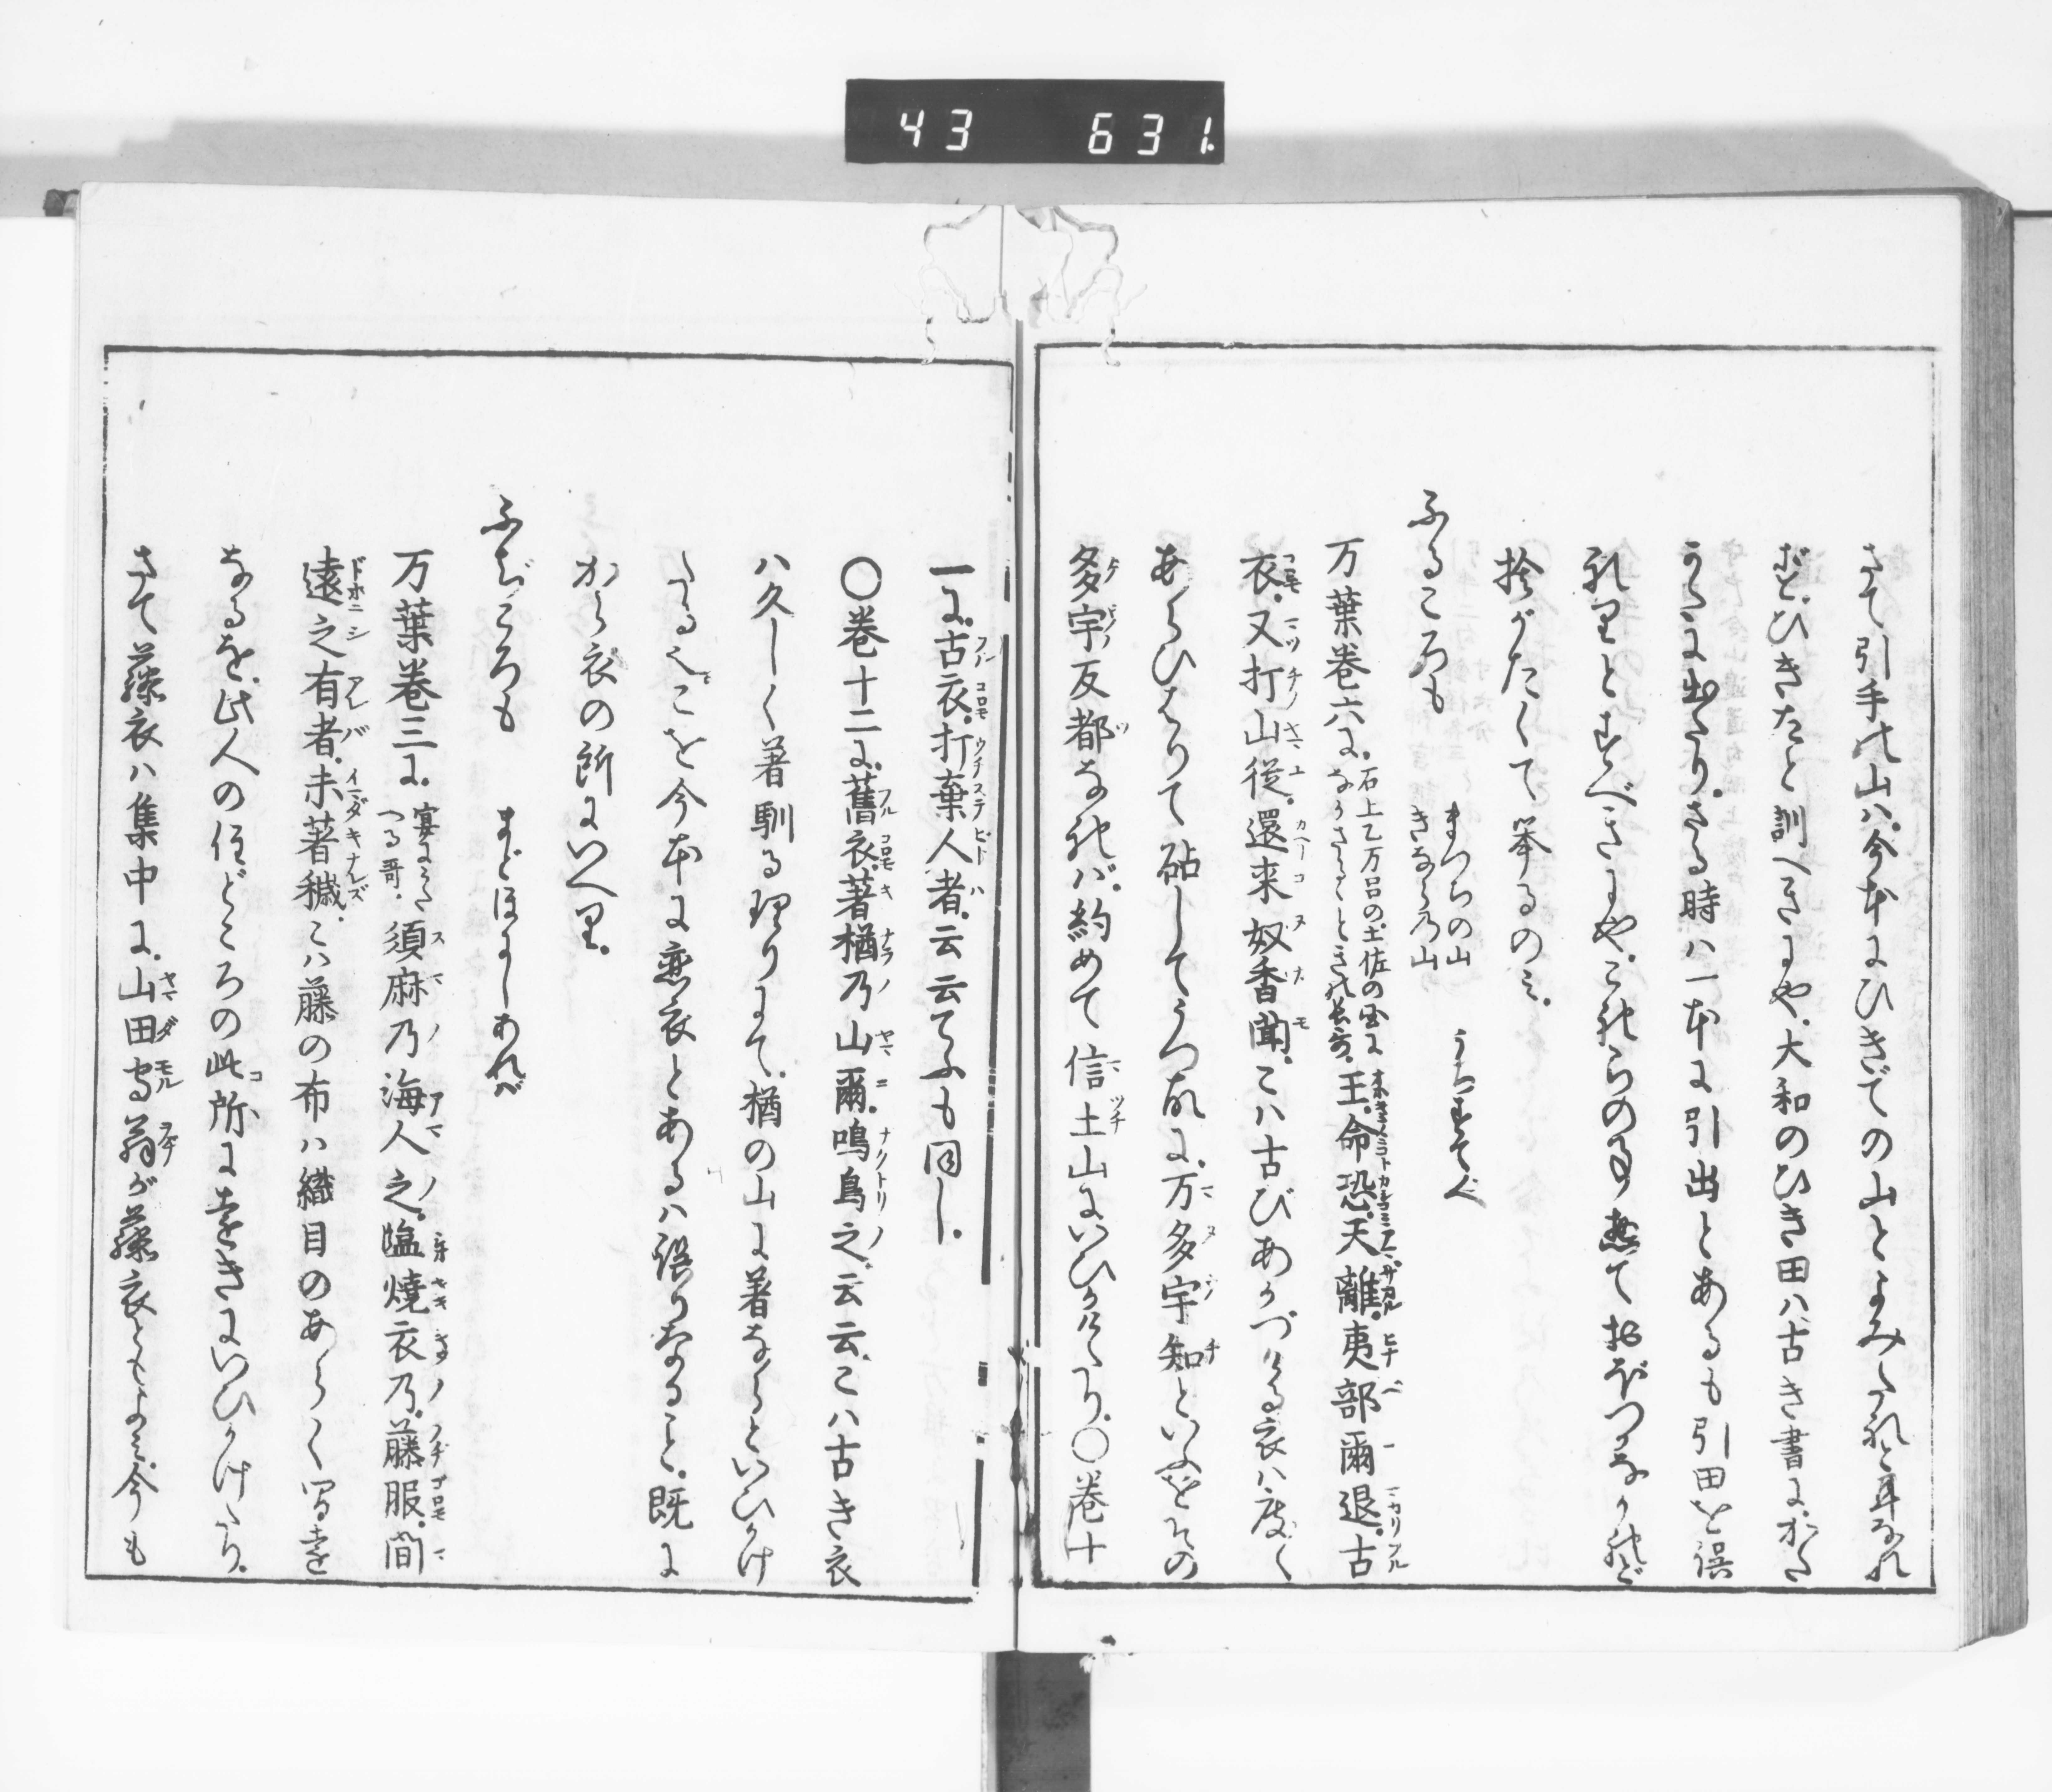 43 631
さて引手の山は、今本にひきでの山とよみたれと、耳なれ
ず、ひきたと訓へきにや、大和のひき田は、古き書にかた
に出たり、さる時は一本に引出とあるも引田を誤
れりとすべきにや、これらの事惣ておぼつかなけれど
捨がたくて挙るのミ、
ふるころも まつちの山 きならの山 うちすてゝ
万葉巻六に、石上乙万呂の、土佐の国に ながさるゝときの長哥、王命恐、天離、夷部爾退、古
衣、又打山従、還来奴香聞、こは古びあかづける衣は、度々
あらひはりて砧してうつ故に、万多宇知といふを、その
多宇反都なれば、約めて信土山にいひかけたり、〇巻十
一に、古衣、打棄人者、云云てふも同し、
〇巻十二に、舊衣、著楢乃山爾、鳴鳥之、云云、こは古き衣
ハ久しく著馴る理りにて、楢の山に著ならといひかけ
たる也、こを今本に恋衣とあるは誤りなること、既に
から衣の所にいへり、
ふぢころも まどほにしあれバ
万葉巻三に、宴にうた つる哥、須麻乃海人之、塩焼衣乃、藤服、間
遠之有者、未著穢、こは藤の布は織目のあらく間遠
なるを、此人の住どころの此所に遠きにいひかけたり、
さて藤衣は集中に、山田守翁が藤衣ともよミ、今も